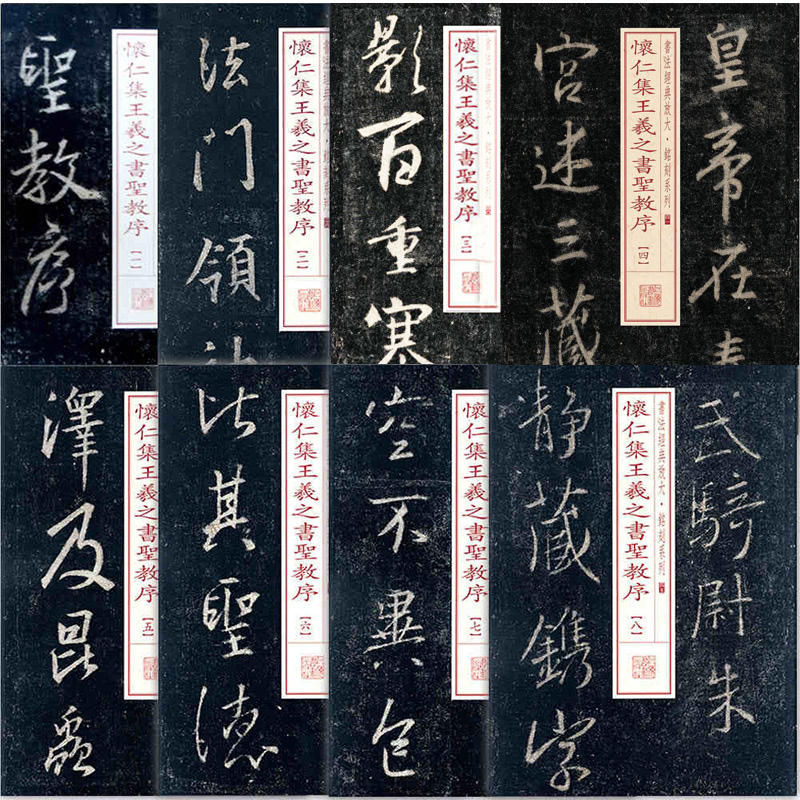 聖教序
懷仁集王羲之書聖教序
[一]
法門領
懷仁集王羲之書聖教序
[二]
影百重寒
懷仁集王羲之書聖教序
[三]
皇帝在
書法經典放大·銘刻系列
懷仁集王羲之書聖教序
[四]
宮述三藏
澤及昆蟲
懷仁集王羲之書聖教序
[五]
比其聖德
懷仁集王羲之書聖教序
[六]
空不異色
懷仁集王羲之書聖教序
[七]
武騎尉朱
書法經典放大·銘刻系列
懷仁集王羲之書聖教序
[八]
靜藏鐫字